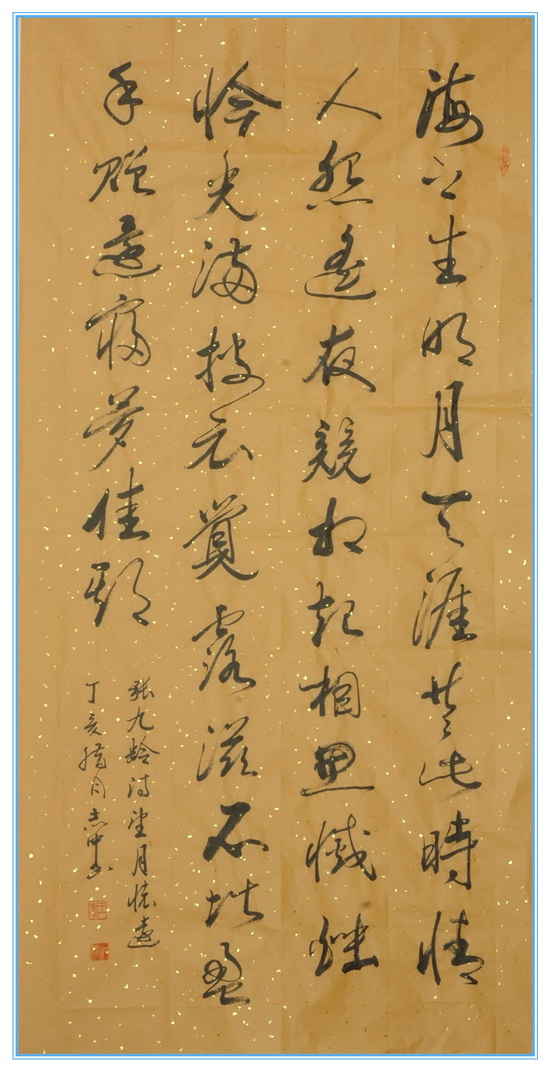 海上生明月天涯共此時情
人怨遙夜競相起相思滅燭
憐光滿披衣覺露滋不堪盈
手贈還寢夢佳期
張九齡詩望月懷遠
丁亥臘月志冲书